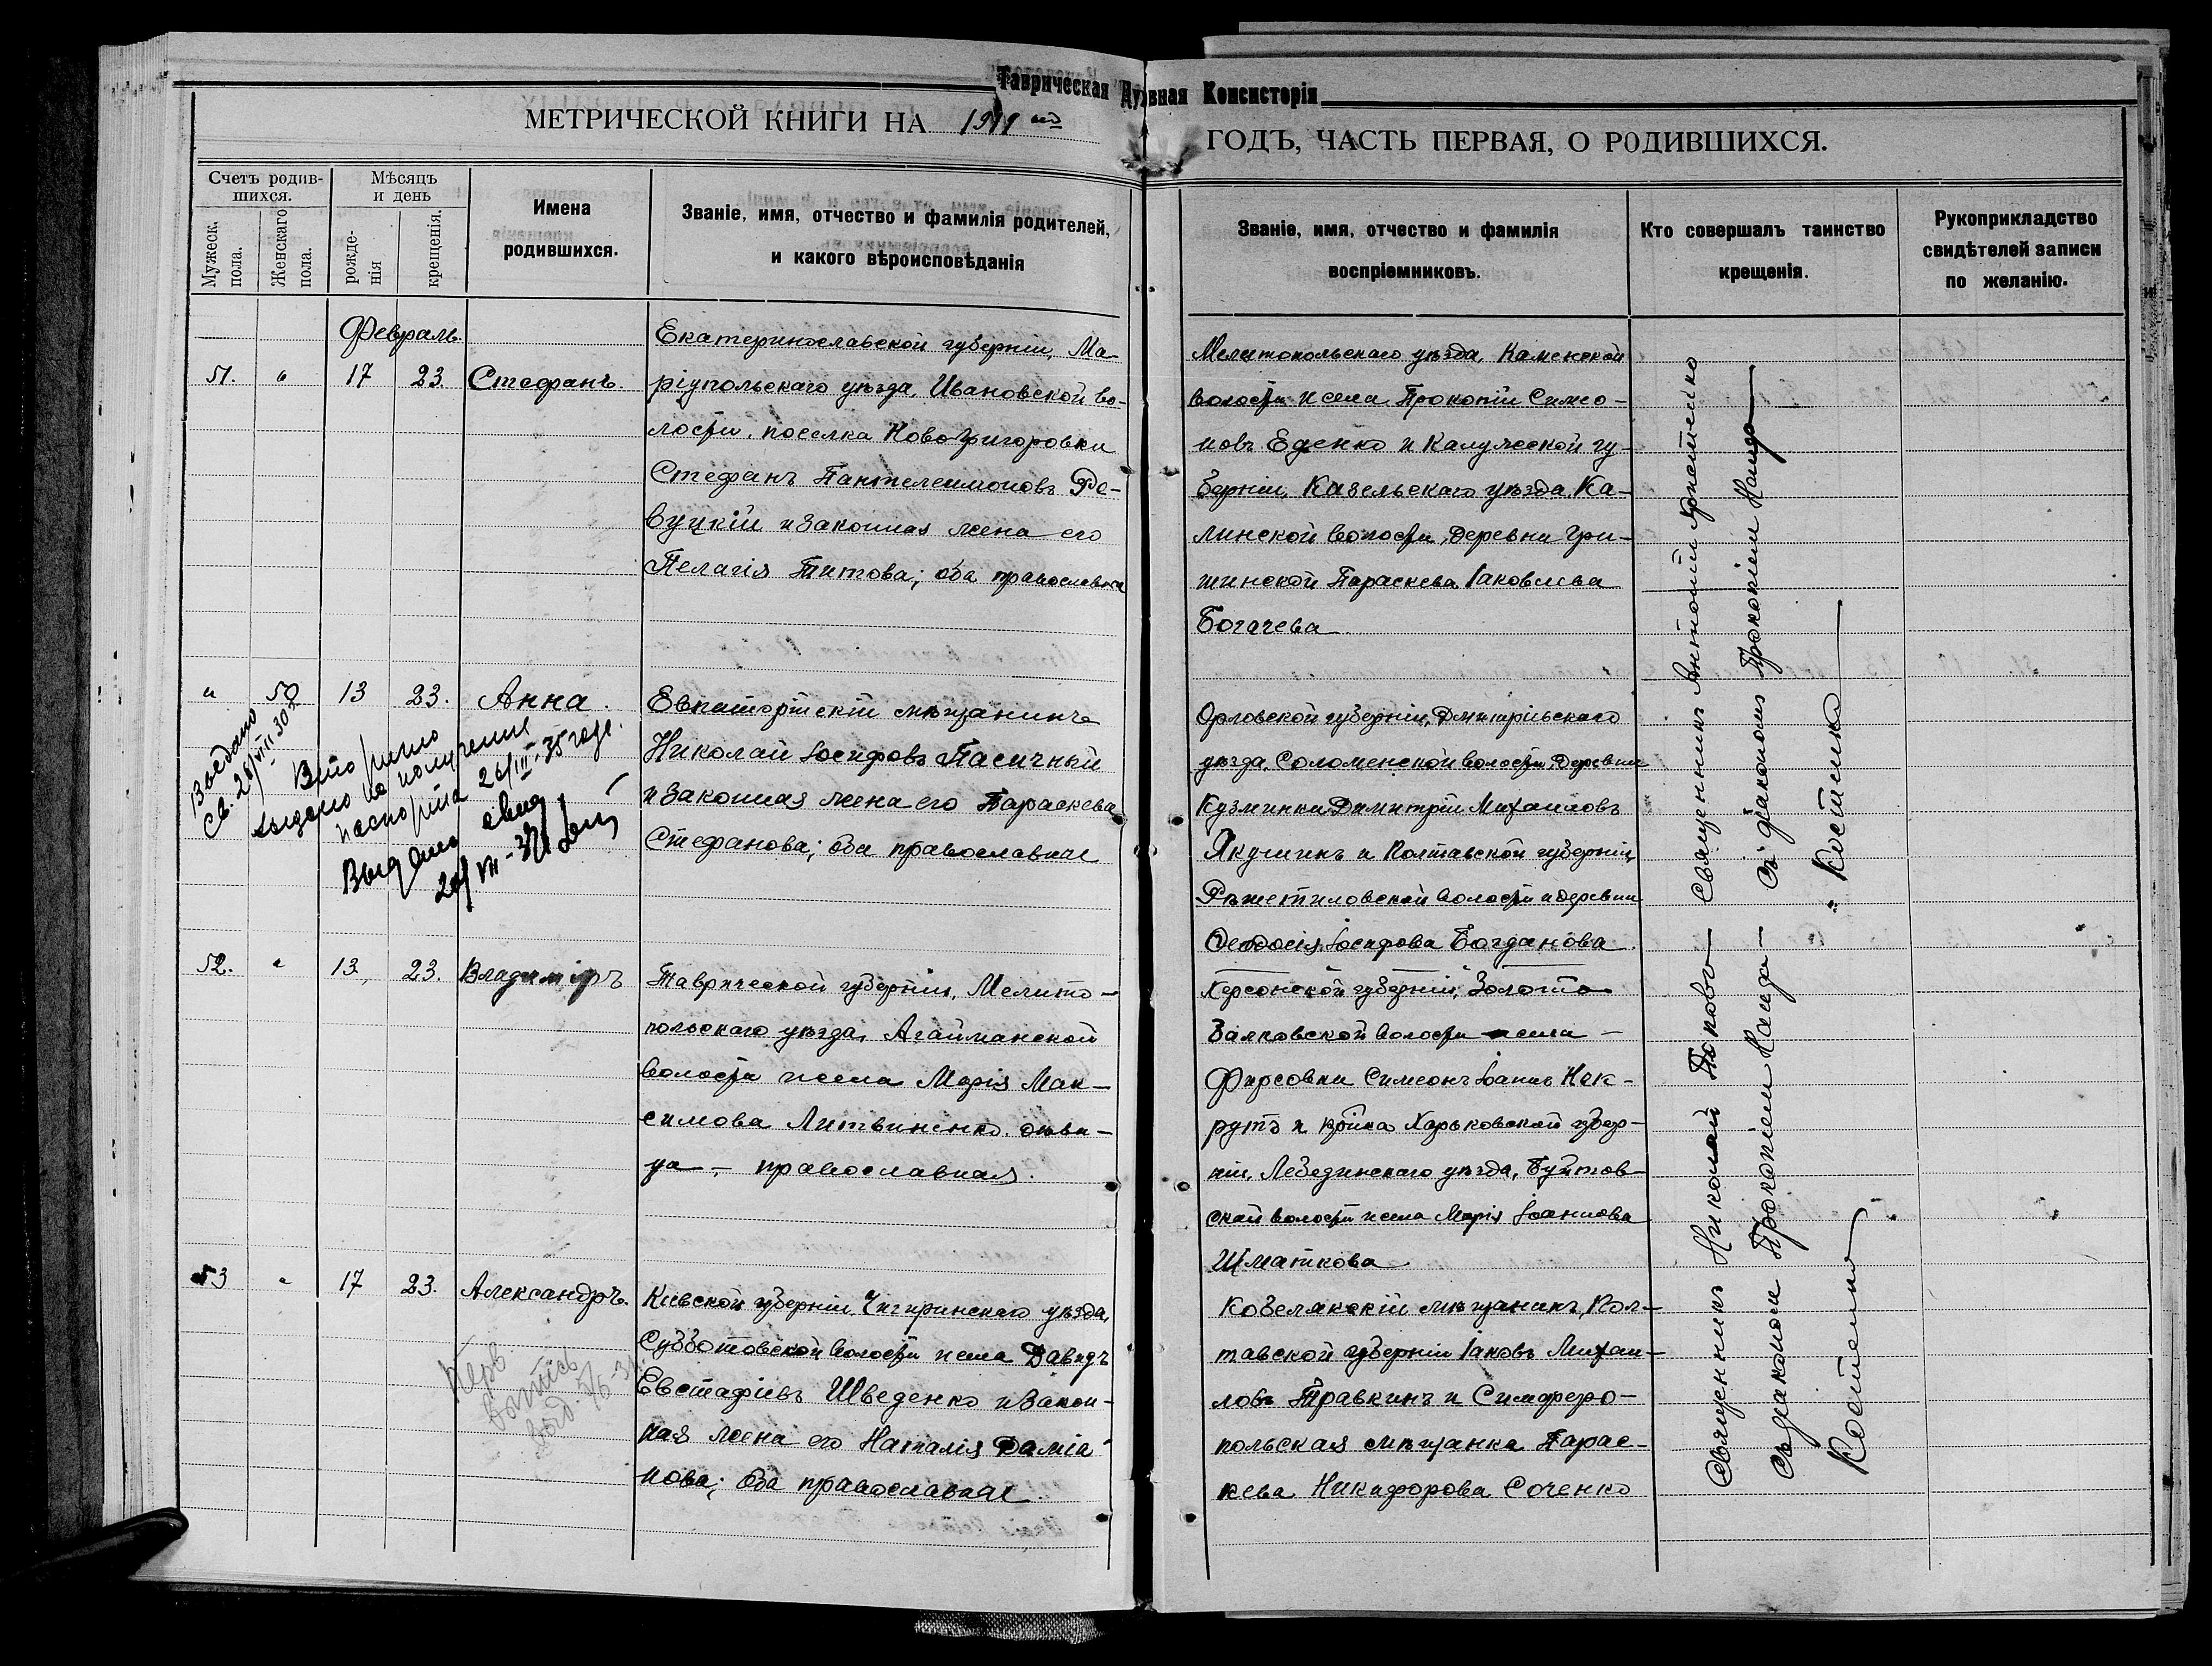 Таврическая Духовная Консисторія
МЕТРИЧЕСКОЙ КНИГИ НА 1911 ый
ГОДЪ, ЧАСТЬ ПЕРВАЯ, О РОДИВШИХСЯ.
Счетъ родив-
шихся.
Мужеск.
пола.
Женскаго
пола.
Мѣсяцъ
и день
рожде-
нія
крещенія.
Имена
родившихся.
Званіе, имя, отчество и фамилія родителей,
и какого вѣроисповѣданія
Званіе, имя, отчество и фамилія
воспріемниковъ.
Кто совершалъ таинство
крещенія.
Рукоприкладство
свидѣтелей записи
по желанію.
Февраль.
51. " 17 23. Стефанъ.
Екатеринославской губерніи, Ма-
ріупольскаго уѣзда, Ивановской во-
лости, поселка Ново-Григоровки
Стефанъ Пантелеимоновъ Ре-
вуцкій и законная жена его
Пелагія Титова; оба православные
Мелитопольскаго уѣзда, Каменской
волости и села Прокопій Симео-
новъ Еденко и Калужской гу-
берніи, Козельскаго уѣзда, Ка-
линской волости, деревни Гри-
шинской Параскева Іаковлева
Богачева
" 50 13 23. Анна.
Евпаторійскій мѣщанинъ
Николай Іосифовъ Пасичный
и законная жена его Параскева
Стефанова; оба православные
Орловской губерніи, Дмитріевскаго
уѣзда, Соломенской волости, деревни
Кузминки Димитрій Михаиловъ
Якушинъ и Полтавской губерніи,
Рѣшетиловской волости и деревни
Ѳеодосія Іосифова Богданова
Выдано
св. 28/VII-30
выдано на получения
паспорта 26/III-35 года.
Выдано свид
52. " 13 23. Владиміръ
Таврической губерніи, Мелито-
польскаго уѣзда, Агайманской
волости и села Марія Мак-
симова Литвиненко, дѣви-
ца, - православная.
Херсонской губерніи, Золото
Балковской волости и села -
Фирсовки Симеонъ Іоанновъ Нек-
рутъ и кр-ка Харьковской губер-
ніи, Лебединскаго уѣзда, Буйтов-
ской волости и села Марія Іоаннова
Шматкова
53 " 17 23. Александръ.
Кіевской губерніи, Чигиринскаго уѣзда,
Субботовской волости и села Давидъ
Евстафіевъ Шведенко и закон-
ная жена его Наталія Даміа-
нова; оба православные.
Кобелякскій мѣщанинъ, Пол-
тавской губерніи Іаковъ Михаи-
ловъ Травкинъ и Симферо-
польская мѣщанка Парас-
кева Никифорова Соченко
Священникъ Антоній
Съ діакономъ Прокопіемъ
" Костенко
Священникъ Николай Поповъ
Съ діакономъ Прокопіемъ
Костенко